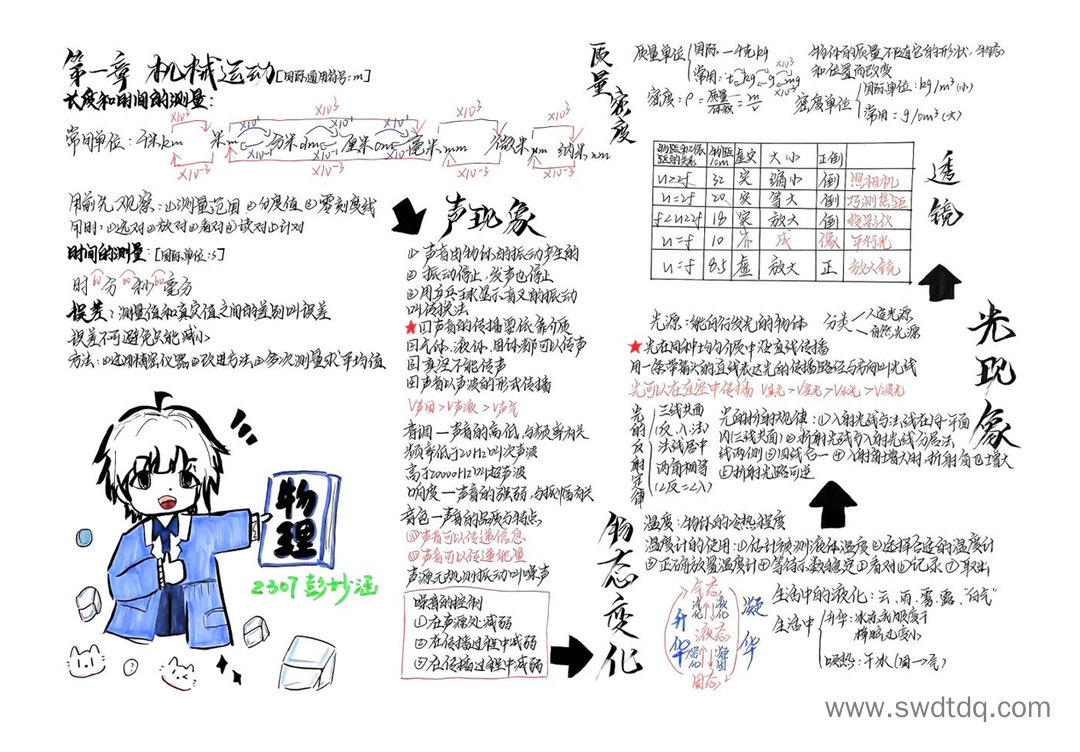 第一章 机械运动[国际通用符号:m]
长度和时间的测量:
常用单位:千米km 米m 分米dm 厘米cm 毫米mm 微米μm 纳米nm
×10³ ×10³ ×10¹ ×10¹ ×10¹ ×10³ ×10³
×10⁻³ ×10⁻¹ ×10⁻¹ ×10⁻¹ ×10⁻³ ×10⁻³ ×10⁻³
用前先观察:①测量范围②分度值③零刻度线
用时:①选对②放对③看对④读对⑤记对
时间的测量:[国际单位:s]
时60分60秒60毫方
误差:测量值和真实值之间的差别叫误差
误差不可避免只能减小
方法:①选用精密仪器②改进方法③多次测量求平均值
物理
2307彭妙涵
声现象
①声音由物体的振动产生的
②振动停止,发声也停止
③用乒乓球显示音叉的振动
叫传换法
★四声音的传播要依靠介质
气体、液体、固体都可以传声
真空不能传声
声音以声波的形式传播
V声固>V声液>V声气
音调一声音的高低,与频率有关
频率低于20Hz叫次声波
高于20000Hz叫超声波
响度一声音的强弱,与振幅有关
音色一声音的品质与特点
声音可以传递信息
声音可以传递能量
声源无规则振动叫噪声
噪音的控制
①在声源处减弱
②在传播过程中减弱
③在传播过程中减弱
质量密度
质量单位 国际:一千克kg
常用:t kg g mg
物体的质量不随它的形状,物态
和位置而改变
密度:ρ=质量/体积=m/V
密度单位 国际单位:kg/m³(小)
常用=g/cm³(大)
透镜
物距和像距的关系 物距/cm 虚实 大小 正倒
u>2f 32 实 缩小 倒 照相机
u=2f 20 实 等大 倒 巧测焦距
f<u<2f 18 实 放大 倒 投影仪
u=f 10 不 成 像 平行光
u=f 8.5 虚 放大 正 放大镜
光现象
光源:能自行发光的物体 分类 人造光源
自然光源
★光在同种均匀介质中沿直线传播
用一条带箭头的直线表达光的传播路径与方向叫光线
光可以在真空中传播 V真光>V空光>V水光>V玻光
光的反射定律
三线共面
(反、入、法)
法线居中
两角相等
(∠反=∠入)
光的折射规律:①入射光线与法线在同一平面
内(三线共面)②折射光线与入射光线分居法
线两侧③四线合一④入射角增大时,折射角也增大
⑤折射光路可逆
物态变化
温度:物体的冷热程度
温度计的使用:①估计被测液体温度②选择合适的温度计
③正确放置温度计④等待示数稳定⑤看对⑥记录⑦取出
气态
液态
固态
升华
凝华
生活中的液化:云,雨,雾,露,"白气"
生活中
升华:冰衣
樟脑丸变小
吸热:干冰(固一气)
www.swdtdq.com